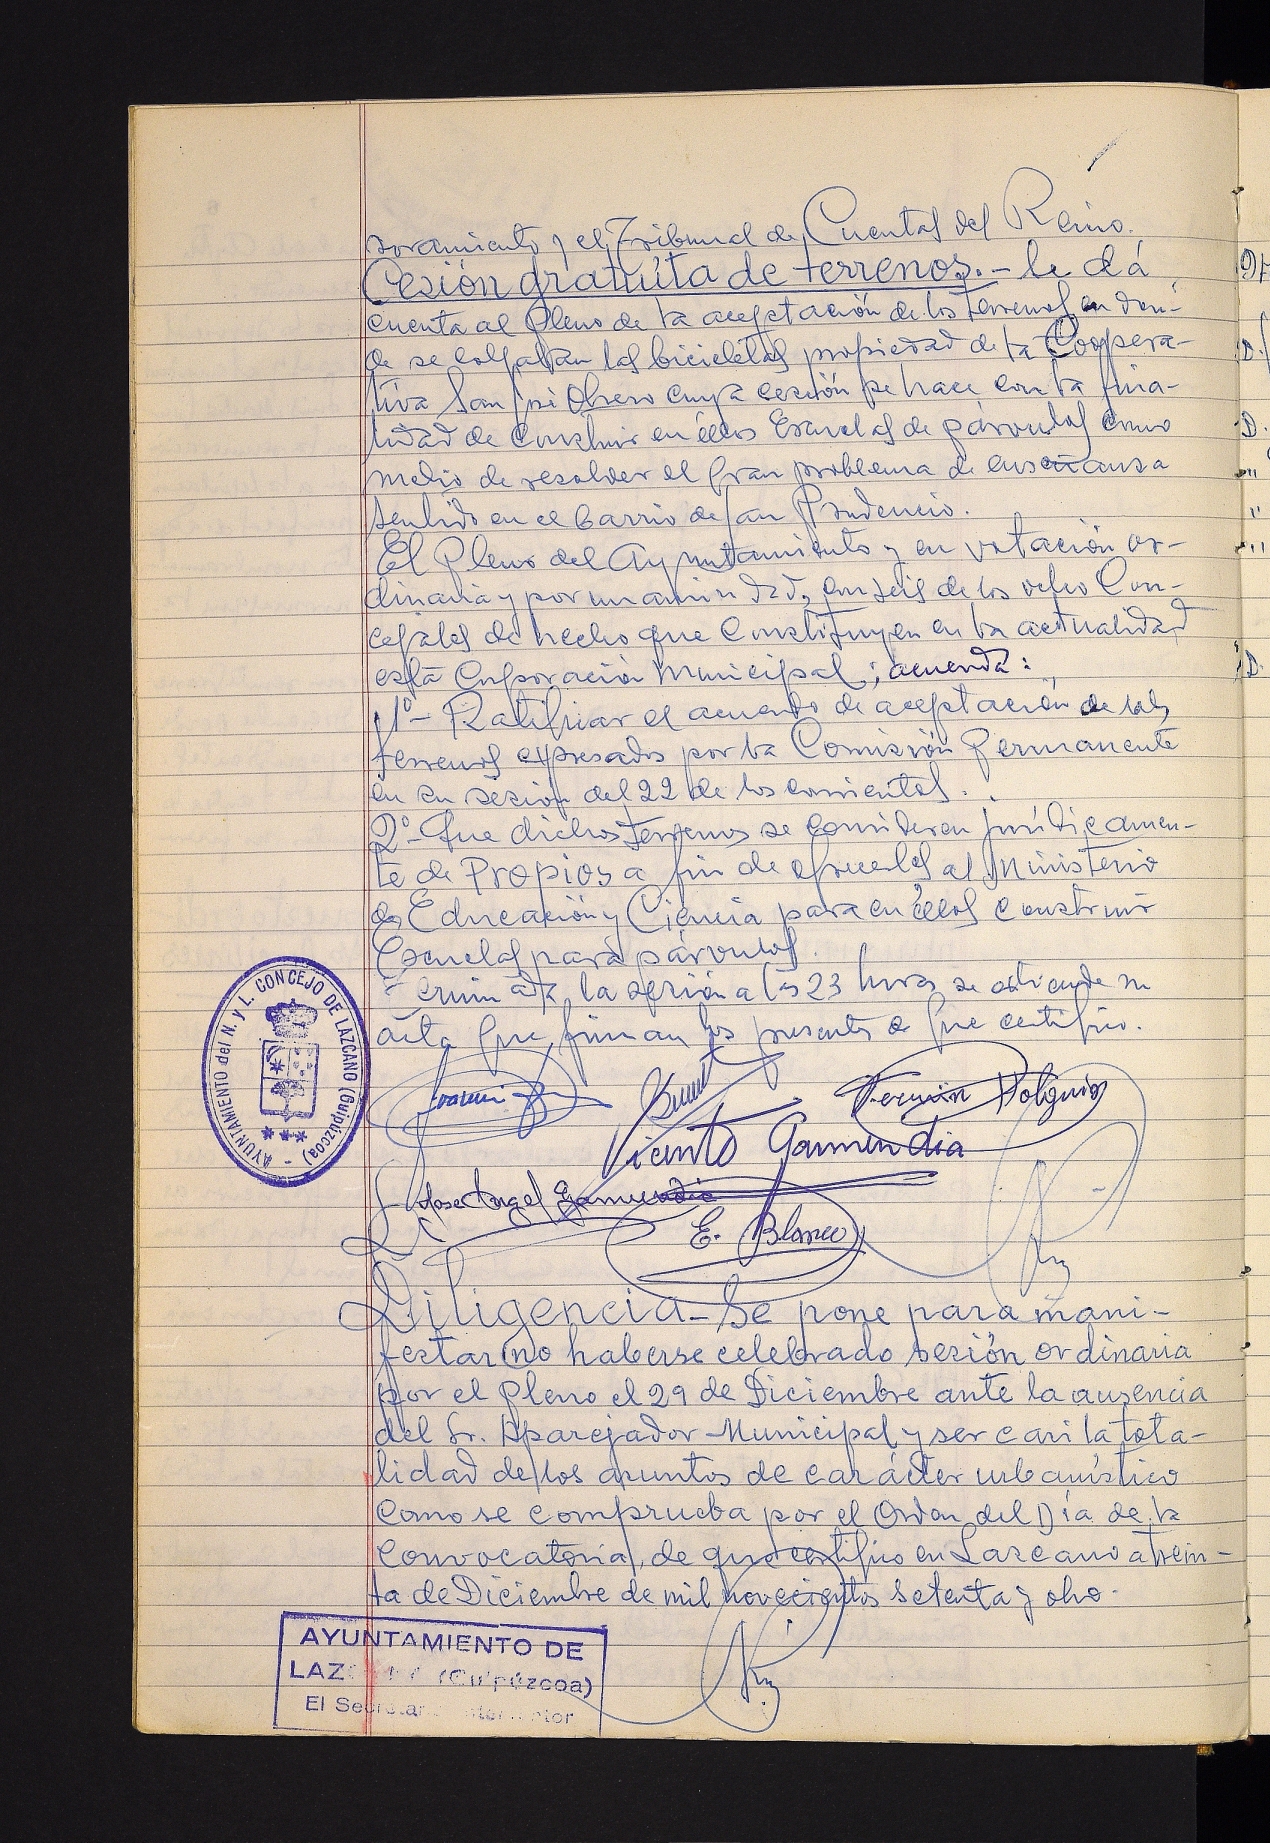 soramiento y el Tribunal de Cuentas del Reino.
Cesión gratuíta de terrenos.- Se dá
cuenta al Pleno de la aceptación de los terrenos en don-
de se las bicicletas propiedad de la Coopera-
tiva San José Obrero cuya cesión se hace con la fina-
lidad de construir en éllos Escuelas de párvulos como
medio de resolver el gran problema de enseñansa
sentido en el barrio de San Prudencio.
El Pleno del Ayuntamiento y en votación or-
dinaria y por unanimidad, con seis de los ocho Con-
cejales de hecho que constituyen en la actualidad
está Corporación Municipal; acuerda:
1º- Ratificar el acuerdo de aceptación de los
terrenos expresados por la Comisión Permanente
en su sesión del 22 de los corrientes.
2º- Que dichos terrenos se consideren jurídicamen-
te de Propios a fin de ofrecerles al Ministerio
de Educación y Ciencia para en éllos construir
Escuelas para párvulos.
Terminada la sesión a las 23 horas se extiende su
acta que firman los presentes de que certifico.
AYUNTAMIENTO del N. y L. CONCEJO DE LAZCANO (Guipúzcoa)
Fermin
Vicente Garmendia
Jose Angel Garmendia
E. Blanco
Diligencia- Se pone para mani-
festar no haberse celebrado sesión ordinaria
por el pleno el 29 de Diciembre ante la ausencia
del Sr. Aparejador Municipal y ser casi la tota-
lidad de los asuntos de carácter urbanístico
como se comprueba por el Orden del Día de la
convocatoria, de que certifico en Lazcano a trein-
ta de Diciembre de mil novecientos setenta y ocho.
AYUNTAMIENTO DE
LAZCANO (Guipúzcoa)
El Secretario Interventor